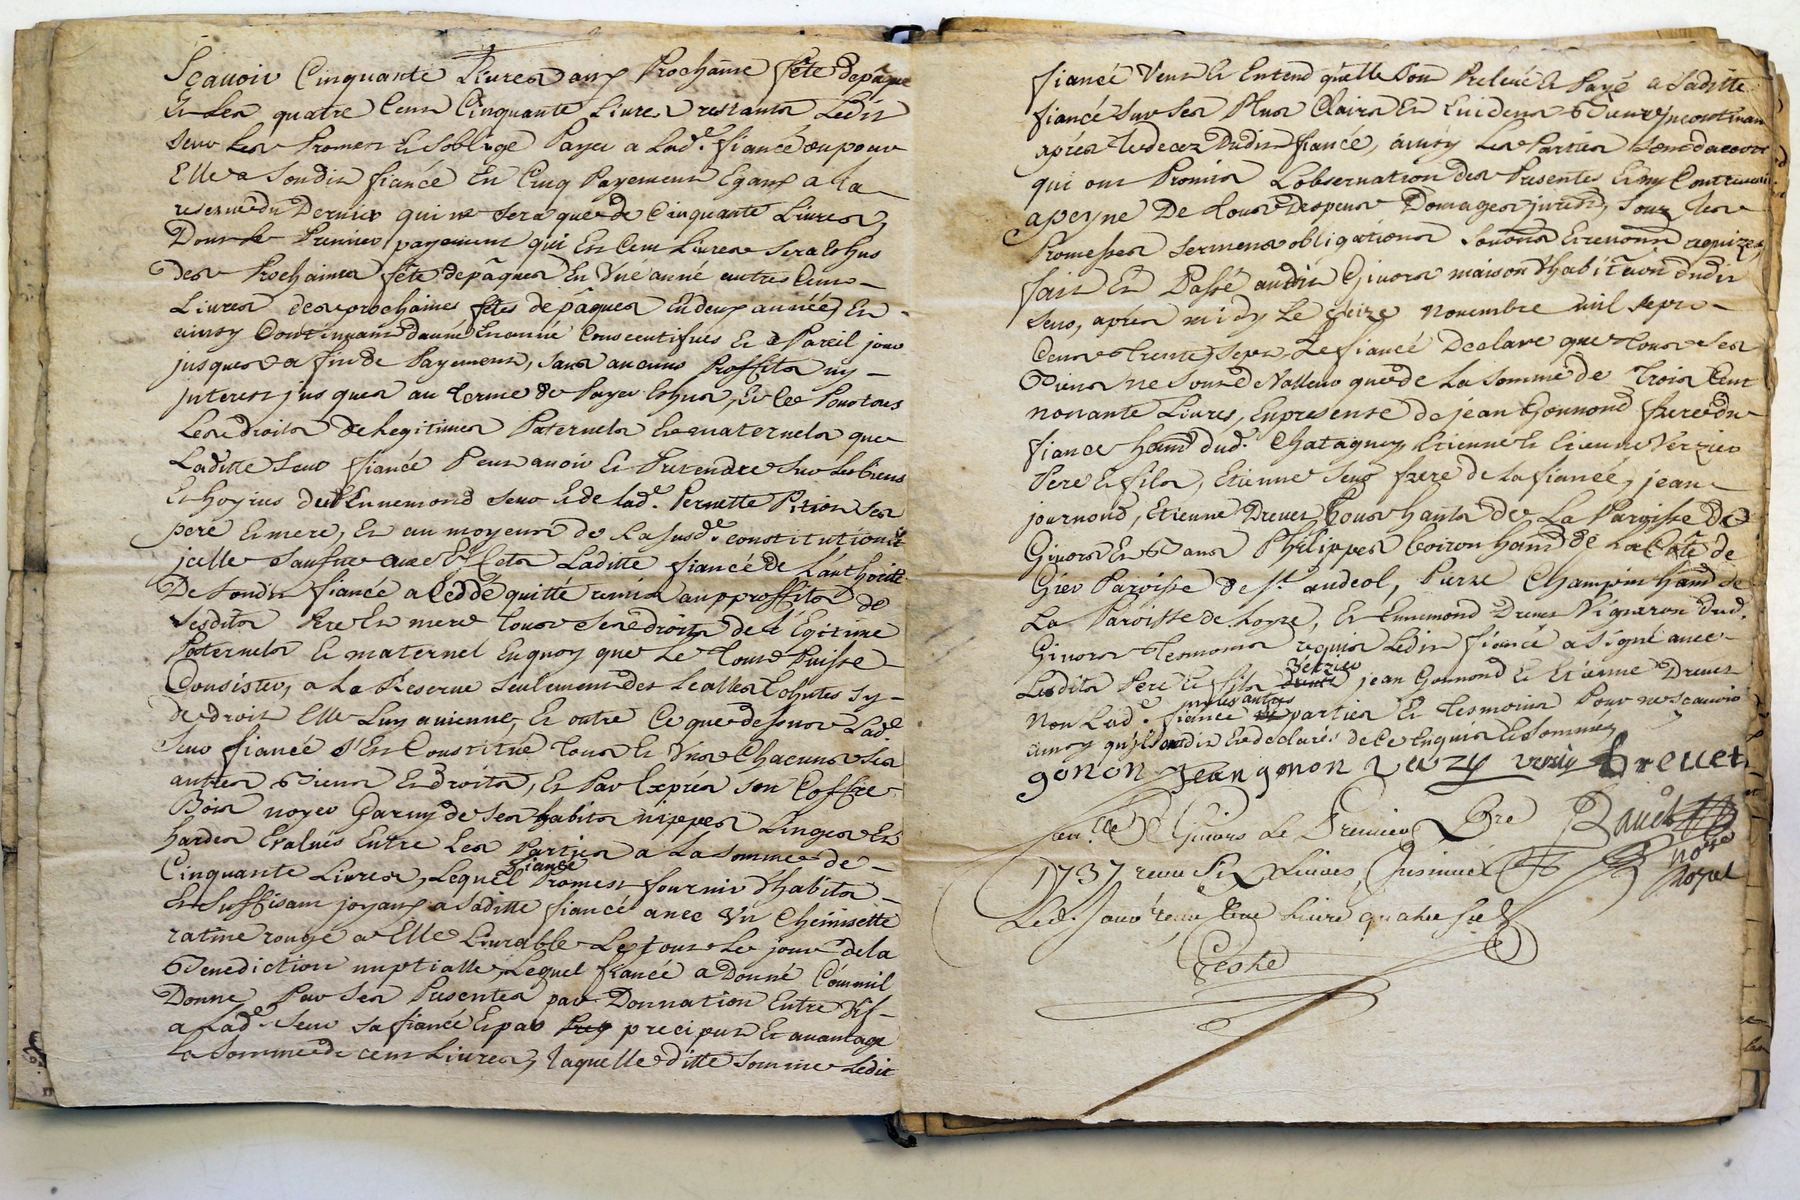 Scavoir Cinquante Livres aux Prochaine fête depâque
Et Les quatre Cent Cinquante Livres restants Ledit
seux Les Promet Et soblige Payer a Lad.e fiancé ou pour
Elle a Soudit fiancé En Cinq Payement Egaux a la
reserve du Dernier qui ne sera que de Cinquante Livres,
Dont Le Premier payement qui Est Cent Livres sera Eshus
des Prochaines fête depâques En Une anné autres Cent
Livres des prochaines fêtes de pâques En deux années Et
ainsy Continuant danné En anné Consecutifves Et a Pareil jour
jusques a fin de Payement, sans aucuns Proffits ny
jnterest jusques au terme de Payer Eshus, Et Ce Pour tous
Les droits de Legitimes Paternels Et maternels que
Laditte seux fiancée Peut avoir Et Pretendre sur Les biens
Et hoyries dud Ennemond seux Et de lad.e Pernette Pition ses
pere Et mere, Et au moyens de La susd.e constitution Et
jcelle saufve aux Effets Laditte fiancée de Lauthorité
De Soudit fiancé a Cedde quitté remis au proffits de
Sesdits Pere Et mere tous ses droits de Legitime
Paternels Et maternel En quoy que Le tout Puisse
Consister, a La Reserve seulement des Lealles Eshutes sy
de droit Elle Luy avienne, Et outre Ce que dessus Lad.e
seux fiancée s'Est Constitué tous Et Uns Chacuns ses
autres Biens Et droits, Et Par Exprés son Coffre
Bois noyer Garny de ses habits nippes Linges Et
hardes Evalués Entre Les Parties a La somme de
fiance
Cinquante Livres, Lequel Promet fournir d'habits
Et suffisant joyaux a saditte fiancée avec Un Chemisette
ratine rouge a Elle Livrable Le tout Le jour de la
Benediction nuptialle, Lequel fiancée a Donné Comme il
Donne Par Ses Presentes par Donnation Entre Vif
a Lad.e seux sa fiancée Et par preciput Et avantage
La somme de cent Livres, Laquelle ditte somme Ledit
fiancé Veut Et Entend qu'elle Soit Relevé Et Payé a Saditte
fiancé sur ses Plus Clairs Et Evidens Biens Jncontinant
aprés Le decez Dudit fiancé, ainsy Les Parties sont d'accord
qui ont Promis L'observation des Presentes Et ny Contrevenir
apeyne De tous despens Domages jnterets, sous Les
Promesses serments obligations soumis Et renonn requizes,
fait Et Passé audit Givors maison d'habitaon dudit
seux, aprés midy Le seize novembre mil sept
Cents trente sept, Le fiancé Declare que tous ses
Biens ne sont de Valleur que de La somme de trois Cent
nonante Livres, En presence de jean Gonnond frere du
fiancé habt dud.t Chatagny, Etienne Et Etienne Verzier
Pere Et fils, Etienne seux frere de La fiancée, jean
journoud, Etienne Drevet tous hants de La Paroisse de
Givors Et Bans Philippes boiron hant de La Côte de
Giers Paroisse de St. andeol, Pierre Champin hant de
La Paroisse de Loyre, Et Ennemond Drevet Vigneron dud.
Givors temoins requis Ledit fiancé a signé avec
Verzier
Lesdits Pere Et fils, jean Gonnond Et Etienne Drevet
ny les autres
Non Lad.e fiancé parties Et temoins Pour ne scavoir
ainsy qu'ils ont dit Et declaré de Ce Enquis Et sommés
gonon Jean gonon verzy verzy drevet
Con.lle a Givors Le Premier Xbre
1737 receu Six Livres Jnsinué
Bauët
Note
Royal
Led. Jour receu Une Livre quatre sols
Teste